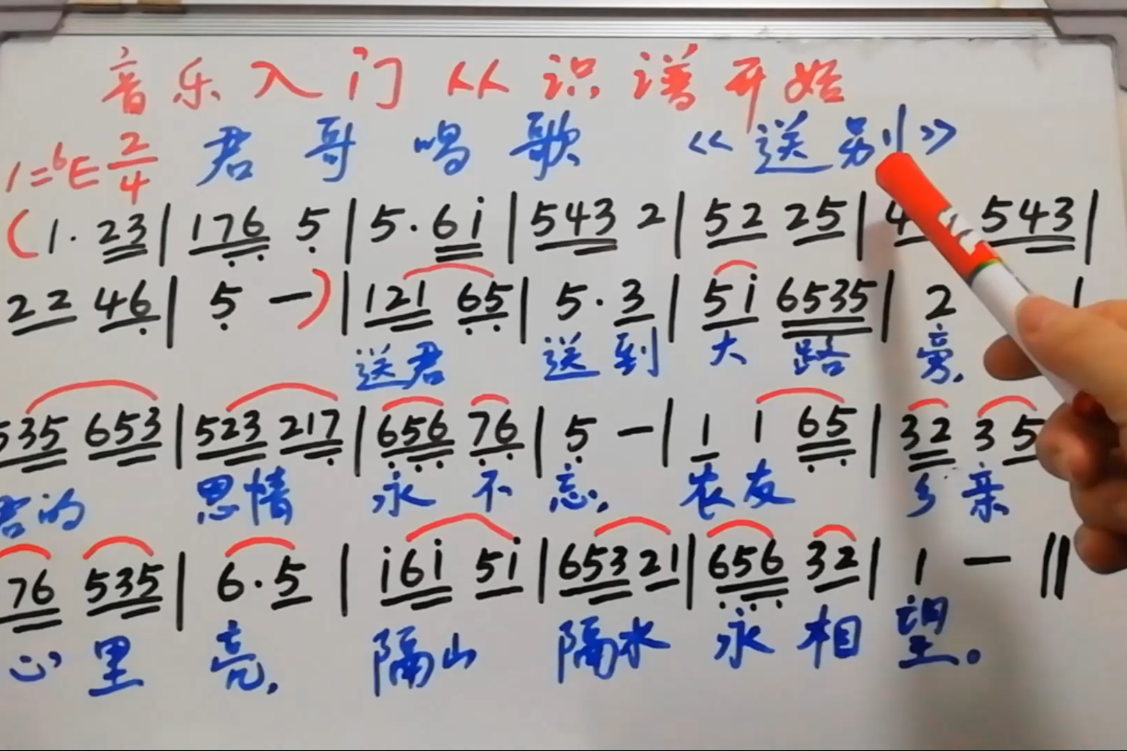 音乐入门从识谱开始
1=♭E 2/4 君哥唱歌 《送别》
(1· 23 | 176 5 | 5· 6i | 543 2 | 52 25 | 4 543 |
22 46 | 5 —) | 121 65 | 5· 3 | 5i 6535 | 2 |
送君 送到 大路 旁,
535 653 | 523 217 | 656 76 | 5 — | 1 1 65 | 32 35
君的 思情 永不忘, 农友 乡亲
76 535 | 6·5 | i6i 5i | 653 21 | 656 32 | 1 — ‖
心里 亮, 隔山 隔水 永相望。